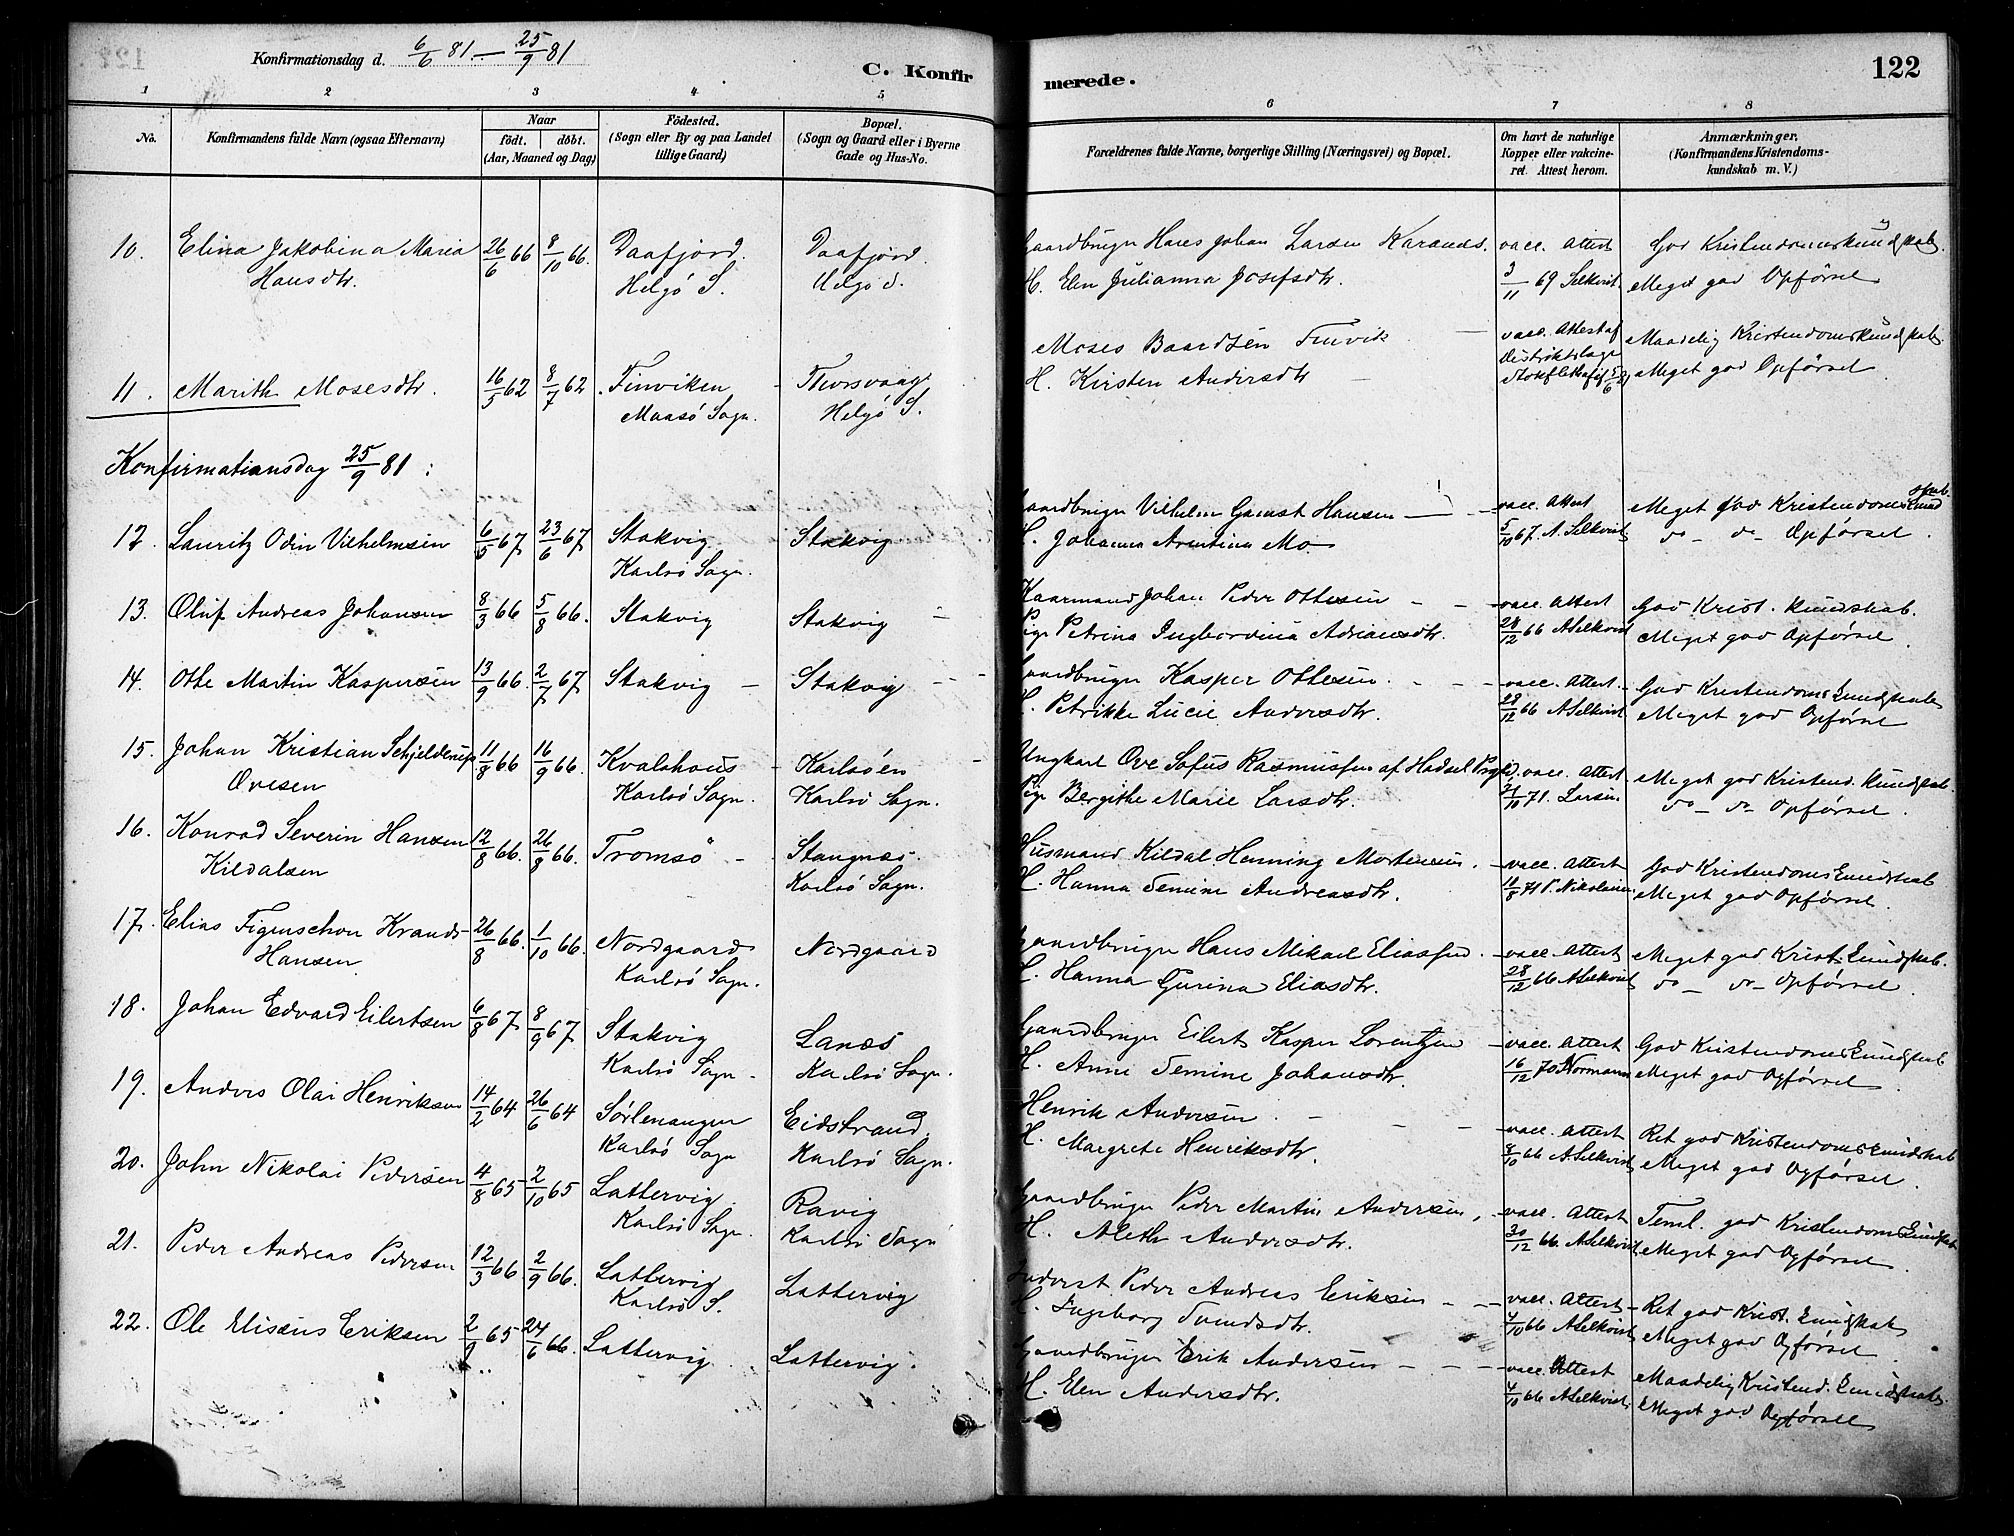 Konfirmationsdag d. 6/6 81. — 25/9 81
C. Konfirmerede.
122
1 2 3 4 5 6 7 8
No.
Konfirmandens fulde Navn (ogsaa Efternavn)
Naar
födt. döbt.
(Aar, Maaned og Dag)
Födested.
(Sogn eller By og paa Landet tillige Gaard)
Bopæl.
(Sogn og Gaard eller i Byerne Gade og Hus-No.
Forældrenes fulde Navne, borgerlige Stilling (Næringsvei) og Bopæl.
Om havt de naturlige Kopper eller vakcineret. Attest herom.
Anmærkninger.
(Konfirmandens Kristendomskundskab m. V.)
10. Elina Jakobina Maria 26/6 66 8/10 66. Daafjord. Daafjord. Gaardbruger Hans Johan Larsen vacc. Attest God Kristendomskundskab.
Hansdtr. Helgö S. Helgö S. H. Elen Julianna Josefsdtr. 3/11 69 Selkvist. Meget god Opförsel
11. Marith Mosesdtr. 16/5 62 8/7 62. Finviken Maasö Sogn. Helgö S. Moses Baardsen Finvik vacc. Attest af Maadelig Kristendomskundskab
H. Kirsten Andersdtr Distriktslæge Meget god Opförsel.
Konfirmationsdag 25/9 81 :
12. Lauritz Odin Vilhelmsen 6/5 67 23/6 67 Stakvig Stakvig Gaardbruger Vilhelm Gamst Hansen vacc. Attest Meget god Kristendomskundskab
Karlsö Sogn. H. Johanna Arentina Mo 5/10 67. A. Selkvist do – do Opförsel.
13. Oluf Andreas Johansen 8/3 66 5/8 66. Stakvig Stakvig Kaarmand Johan Peder Ottesen vacc. Attest God Krist. kundskab.
Pige Petrina Ingbordina Adriansdtr. 28/12 66 A Selkvist Meget god Opförsel.
14. Otte Martin Kaspersen 13/9 66. 2/7 67 Stakvig Stakvig Gaardbruger Kasper Ottesen vacc. Attest. God Kristendomskundskab
H. Petrikke Lucie Andersdtr. 28/12 66 A Selkvist Meget god Opförsel
15. Johan Kristian Schjelderup 11/8 66 16/9 66. Kvalshaus Karlsöen Ungkarl Ove Sofus Rasmussen af Hadsel Prgld. vacc. Attest Meget god Kristend. kundskab.
Ovesen Karlsö Sogn. Karlsö Sogn. Pige Bergithe Marie Larsdtr. 71. Larsen. do – do Opförsel.
16. Konrad Severin Hansen 12/8 66. 26/8 66. Tromsö Stangnæs. Husmand Kildal Henning Mortensen. vacc. Attest God Kristendomskundskab
Kildalsen Karlsö Sogn. H. Hanna Semine Andreasdtr. 11/8 71 Nikolaisen Meget god Opförsel.
17. Elias Figenschou Krands- 26/8 66. 1/10 66. Nordgaard Nordgaard Gaardbruger Hans Mikael Eliassen vacc. Attest Meget god Krist. kundskab.
Hansen Karlsö Sogn. H. Hanna Gurina Eliasdtr. 28/12 66 A Selkvist do – do – Opförsel.
18. Johan Edvard Eilertsen 6/8 67 8/9 67 Stakvig Lanæs Gaardbruger Eilert Kasper Lorentzen vacc. Attest God Kristendomskundskab
Karlsö Sogn Karlsö Sogn. H. Anne Semine Johansdtr. 16/12 70 Normann Meget god Opförsel.
19. Anders Olai Henriksen 14/2 64 26/6 64 Sörlenangen Eidstrand. Henrik Andersen vacc. Attest Ret god Kristendomskundskab
Karlsö Sogn Karlsö Sogn. H. Margrete Henriksdtr. 4/10 66 A. Selkvist Meget god Opförsel.
20. John Nikolai Pedersen 4/8 65 2/10 65 Lattervig Ravig Gaardbruger Peder Martin Andersen. vacc. Attest Teml. god Kristendomskundskab
Karlsö Sogn. Karlsö Sogn H. Aleth Andersdtr. 30/12 66. A Selkvist Meget god Opförsel.
21. Peder Andreas Pedersen 12/3 66 2/9 66. Lattervig Lattervig Inderst Peder Andreas Eriksen vacc. Attest Ret god Krist. kundskab
Karlsö S. H. Ingeborg Svendsdtr. 4/10 66 A Selkvist Meget god Opförsel.
22. Ole Elisæus Eriksen 2/9 65 24/6 66. Lattervig Lattervig. Gaardbruger Erik Andersen vacc. Attest Maadelig Kristend. kundskab.
H. Elen Andersdtr. 4/10 66 A Selkvist Meget god Opförsel